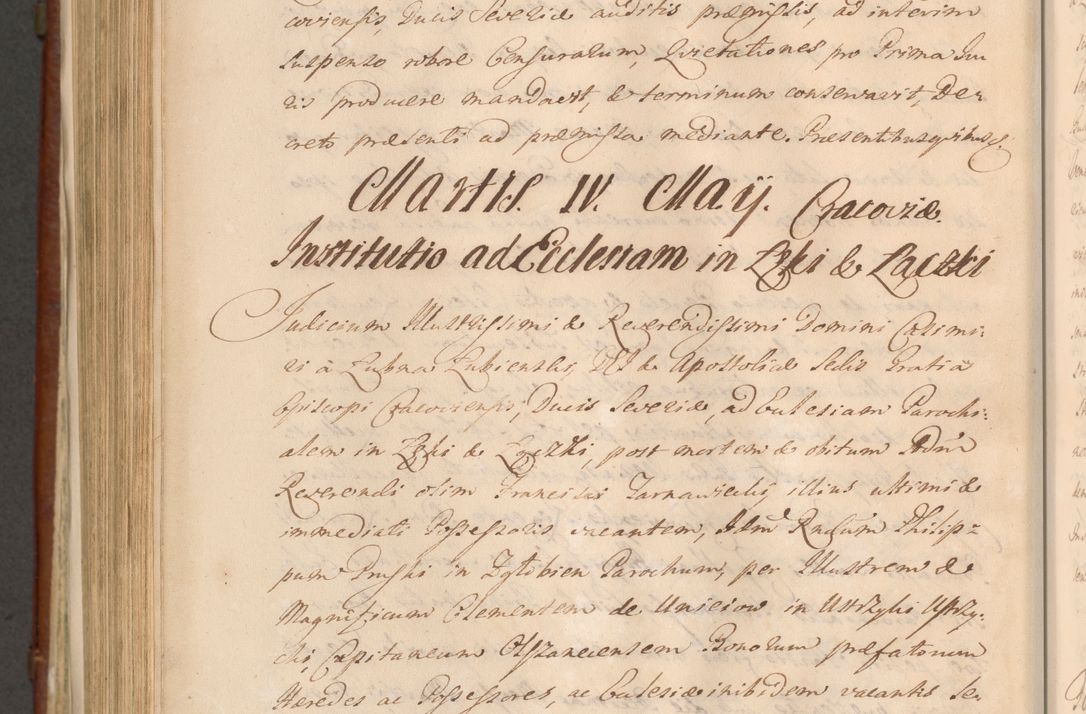 coviensis, Ducis Severiæ auditis præmissis, ad interim
suspenso robore Censurarum, Quietationes pro Prima Iu
ris producere mandavit, & terminum conservavit, De-
creto præsenti ad præmissa mediante. Præsentibus quibus S.
Martis IV. May. Cracoviæ.
Institutio ad Ecclesiam in Łęki & Łączki
Iudicium Illustrissimi & Reverendissimi Domini Casimi:
ri à Łubna Łubienski, DEI & Apostolicæ Sedis Gratia
Episcopi Cracoviensis, Ducis Severiæ, ad Ecclesiam Parochi:
alem in Łęki & Łączki, post mortem & obitum Adm
Reverendi olim Francisci Tarnawiecki, illius ultimi &
immediati Possessoris vacantem, Adm Rndum Philip-
pum Pruski in Parochum, per Illustrem &
Magnificum Clementem de Unieiow in Ustrzyki Ustrzy:
cki, Capitaneum Bonorum præfatorum
Hæredes ac Possessores, ac Ecclesiæ inibidem vacantis Se-